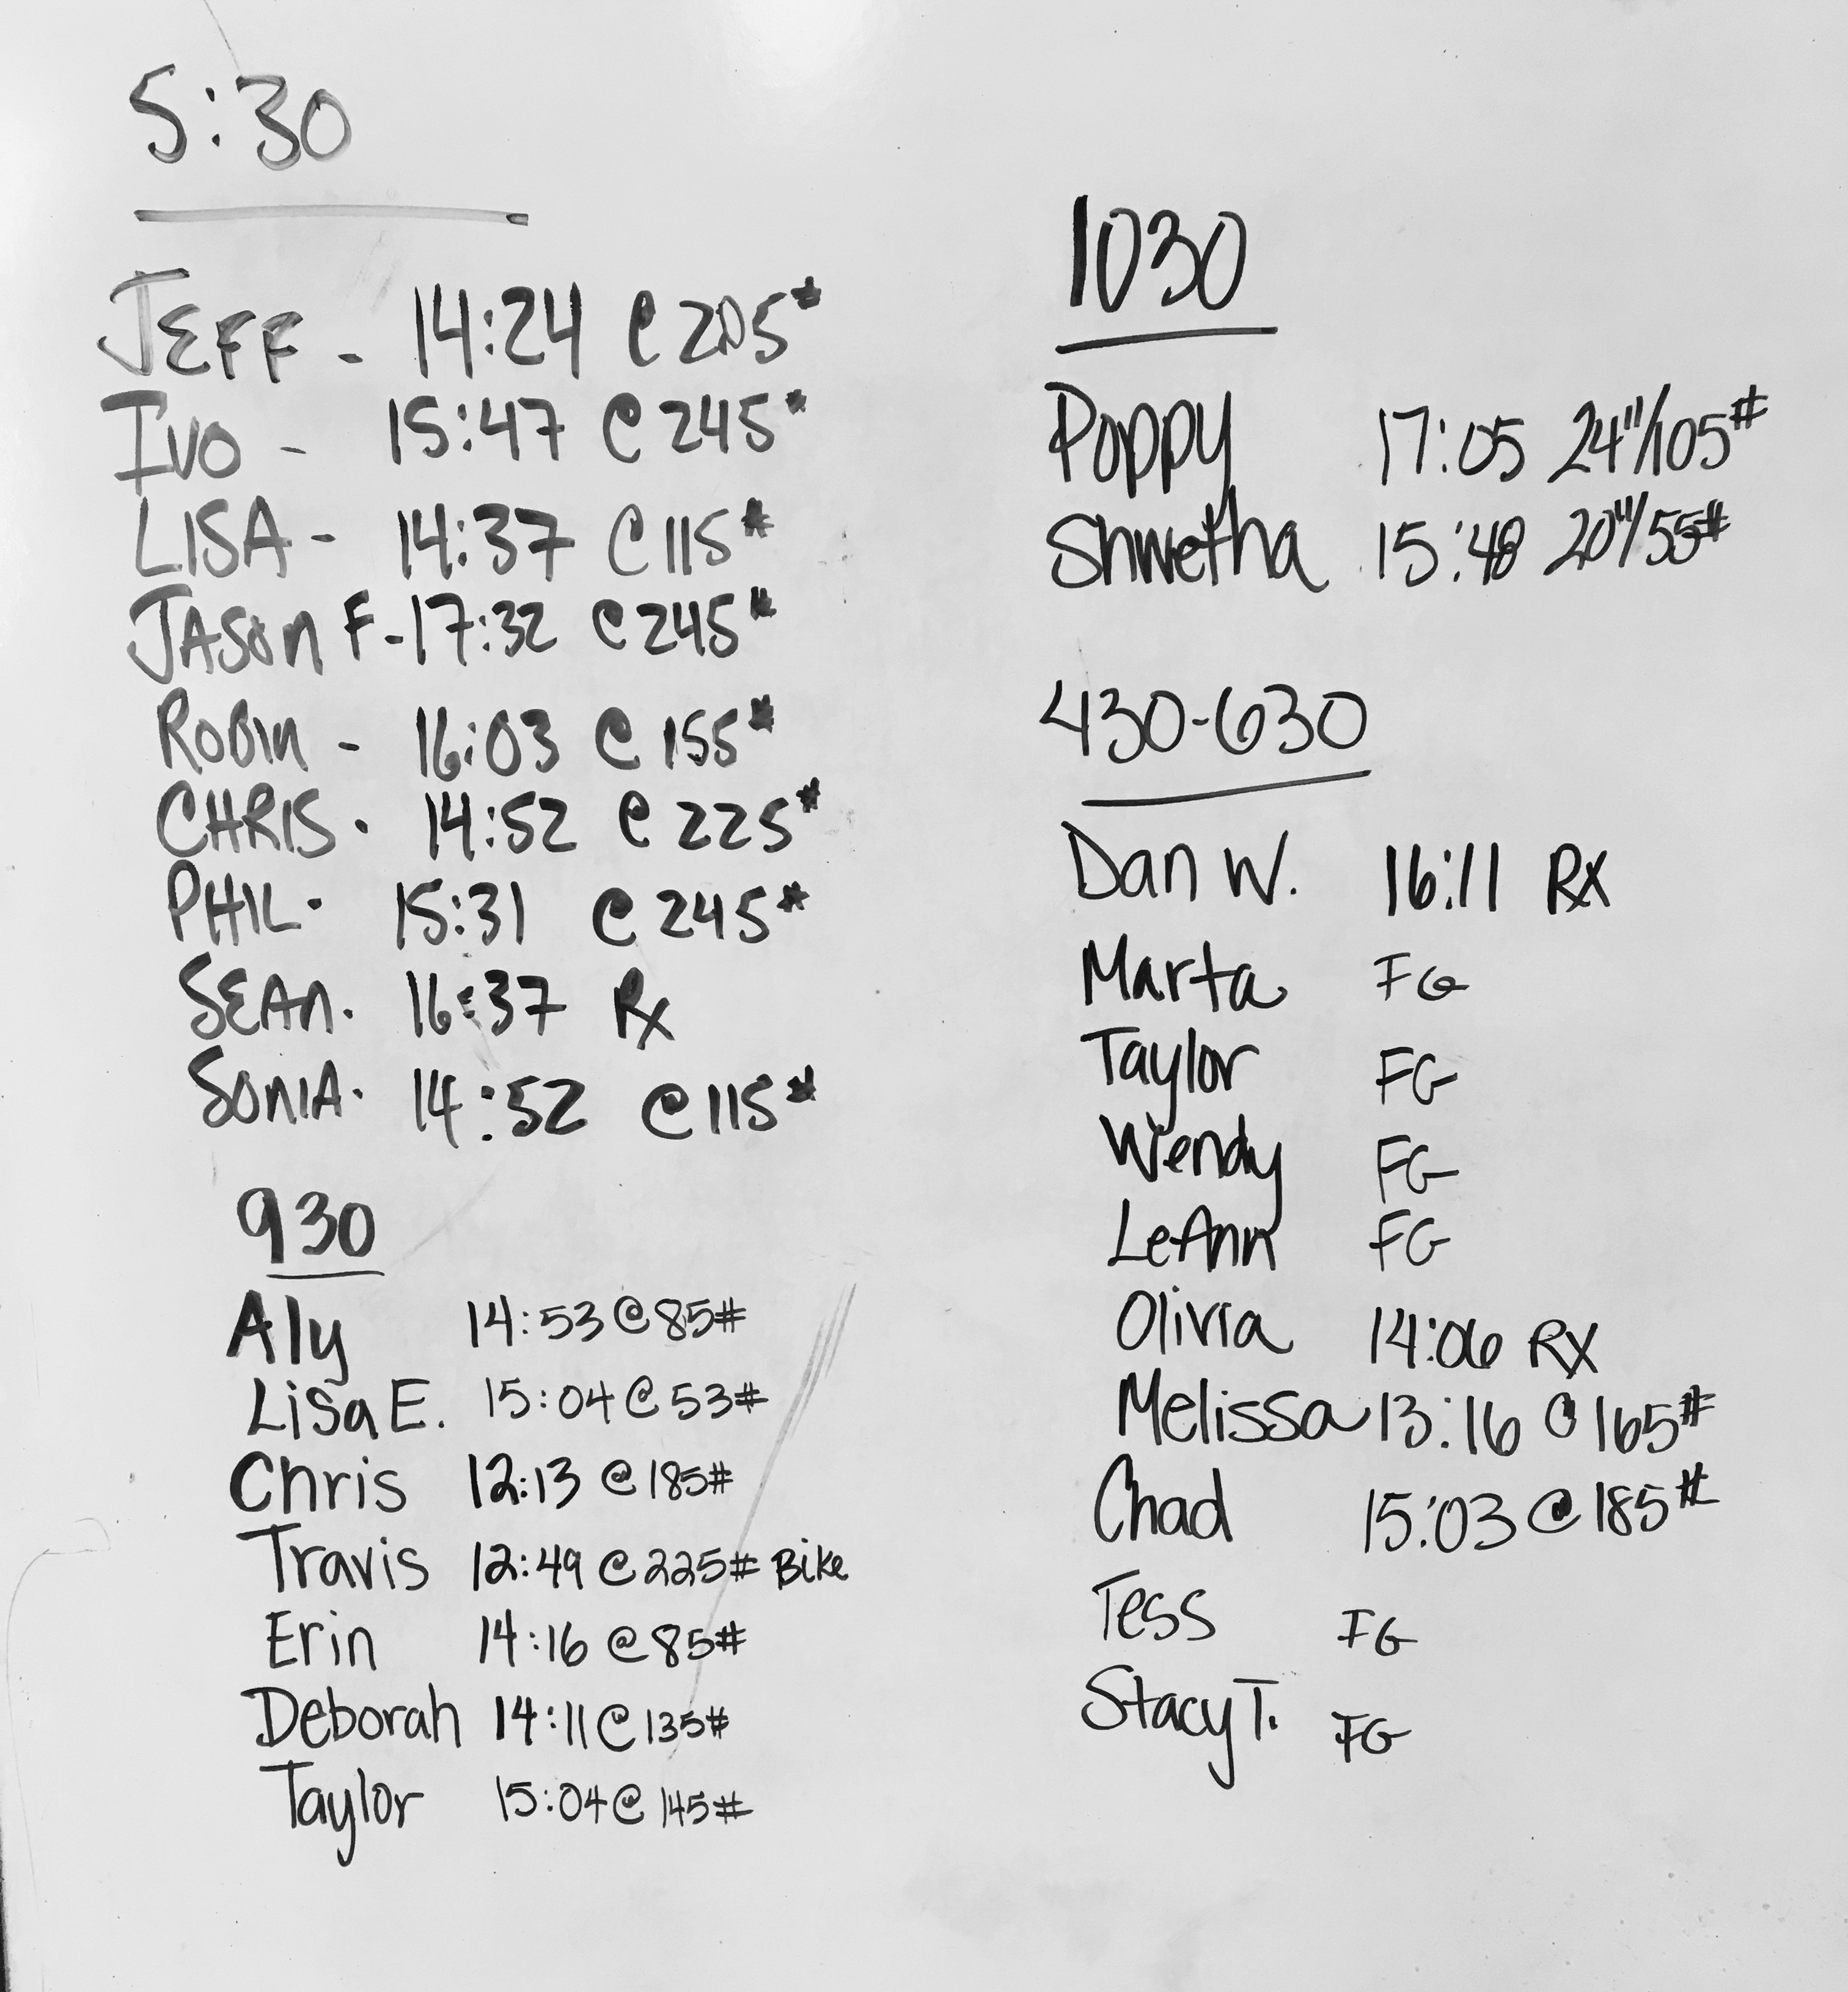 5:30
JEFF - 14:24 @ 205#
IVO - 15:47 @ 245#
LISA - 14:37 @ 115#
JASON F - 17:32 @ 245#
ROBIN - 16:03 @ 155#
CHRIS - 14:52 @ 225#
PHIL - 15:31 @ 245#
SEAN - 16:37 Rx
SONIA - 14:52 @ 115#
930
Aly 14:53 @ 85#
Lisa E. 15:04 @ 53#
Chris 12:13 @ 185#
Travis 12:49 @ 225# Bike
Erin 14:16 @ 85#
Deborah 14:11 @ 135#
Taylor 15:04 @ 145#
1030
Poppy 17:05 24"/105#
Shwetha 15:48 20"/55#
430-630
Dan W. 16:11 RX
Marta FG
Taylor FG
Wendy FG
LeAnn FG
Olivia 14:06 RX
Melissa 13:16 @ 165#
Chad 15:03 @ 185#
Tess FG
Stacy T. FG